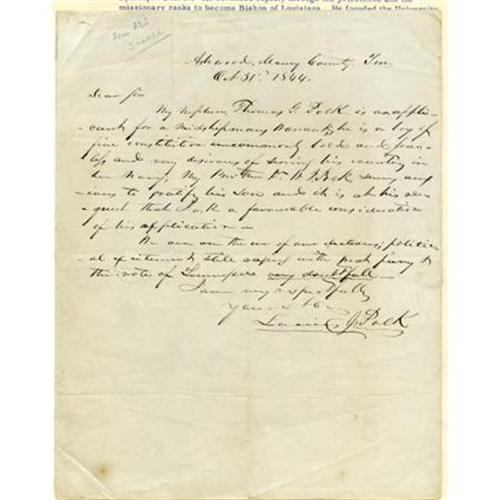 missionary ranks to become Bishop of Louisiana. He founded the University
Ashwood, Maury County Ten
Oct 31st 1844.
Dear Sir
My nephew Thomas G. Polk is an appli-
cant for a midshipmans Warrant, he is a boy of
fine constitution uncommonly bold and fear-
less and very desirous of serving his country in
her Navy, My Brother Dr W J Polk
ious to gratify his Son and it is at his re-
quest that I ask a favourable consideration
of his application —
We are on the eve of our elections, politic-
al excitement still raging with much fury &
the vote of Tennessee very doubtfull —
I am very respectfully
Your
Lucius J. Polk